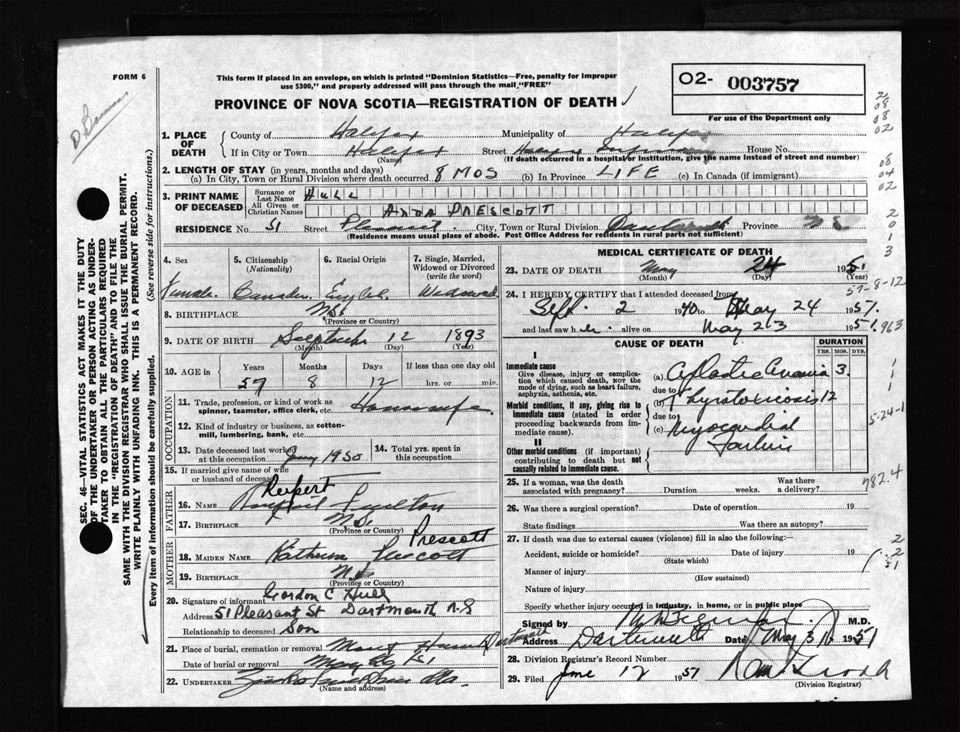 FORM 6
D Bown
This form if placed in an envelope, on which is printed "Dominion Statistics—Free, penalty for improper
use $300," and properly addressed will pass through the mail, "FREE"
PROVINCE OF NOVA SCOTIA—REGISTRATION OF DEATH
O2- 003757
For use of the Department only
1. PLACE OF DEATH
County of Halifax Municipality of Halifax
If in City or Town Halifax Street Halifax Infirmary House No.
(Name) (If death occurred in a hospital or institution, give the name instead of street and number)
2. LENGTH OF STAY (in years, months and days)
(a) In City, Town or Rural Division where death occurred 8 MOS (b) In Province LIFE (c) In Canada (if immigrant)
3. PRINT NAME OF DECEASED
Surname or Last Name HULL
All Given or Christian Names PRESCOTT
RESIDENCE No 51 Street Pleasant City, Town or Rural Division Dartmouth Province N S
(Residence means usual place of abode. Post Office Address for residents in rural parts not sufficient)
4. Sex 5. Citizenship (Nationality) 6. Racial Origin 7. Single, Married, Widowed or Divorced (write the word)
Female Canadian Widowed
8. BIRTHPLACE N.S.
(Province or County)
9. DATE OF BIRTH September 12 1893
(Month) (Day) (Year)
10. AGE in Years Months Days If less than one day old
57 8 12 hrs. or min.
OCCUPATION
11. Trade, profession, or kind of work as
spinner, teamster, office clerk, etc. Housewife
12. Kind of industry or business, as cotton-
mill, lumbering, bank, etc.
13. Date deceased last worked at this occupation 1950 14. Total yrs. spent in this occupation
15. If married give name of wife
or husband of deceased
Rupert
FATHER
16. NAME
17. BIRTHPLACE N.S.
(Province or Country)
MOTHER
Prescott
18. MAIDEN NAME Prescott
19. BIRTHPLACE N.S.
(Province or Country)
20. Signature of informant Gordon C Hull
Address 51 Pleasant St Dartmouth N.S
Relationship to deceased Son
21. Place of burial, cremation or removal Mount Dartmouth
Date of burial or removal May
22. UNDERTAKER
(Name and address)
MEDICAL CERTIFICATE OF DEATH
23. DATE OF DEATH May 24 1951
(Month) (Day) (Year)
24. I HEREBY CERTIFY that I attended deceased from
Sept. 2 1940 to May 24 1951.
and last saw her alive on May 23 1951
CAUSE OF DEATH
DURATION
YRS. MOS. DYS.
I
Immediate cause
Give disease, injury or complica-
tion which caused death, NOT the
mode of dying, such as heart failure,
asphyxia, asthenia, etc.
(a) Aplastic Anemia 3
due to
Morbid conditions, if any, giving rise to
immediate cause (stated in order
proceeding backwards from im-
mediate cause).
(b) Thyrotoxicosis 12
due to
(c) Myocardial
Failure
II
Other morbid conditions (if important)
contributing to death but not
causally related to immediate cause.
25. If a woman, was the death
associated with pregnancy? Duration weeks. Was there a delivery?
26. Was there a surgical operation? Date of operation 19
State findings Was there an autopsy?
27. If death was due to external causes (violence) fill in also the following:—
Accident, suicide or homicide? Date of injury 19
(State which)
Manner of injury
(How sustained)
Nature of injury
Specify whether injury occurred in industry, in home, or in public place
Signed by M.D.
Address Dartmouth Date May 1951
28. Division Registrar's Record Number
29. Filed June 12 1951
(Division Registrar)
SEC. 46—VITAL STATISTICS ACT MAKES IT THE DUTY
OF THE UNDERTAKER OR PERSON ACTING AS UNDER-
TAKER TO OBTAIN ALL THE PARTICULARS REQUIRED
IN THE "REGISTRATION OF DEATH" AND TO FILE THE
SAME WITH THE DIVISION REGISTRAR WHO SHALL ISSUE THE BURIAL PERMIT.
WRITE PLAINLY WITH UNFADING INK. THIS IS A PERMANENT RECORD.
Every item of information should be carefully supplied. (See reverse side for instructions.)
2
08
8
02
08
04
02
2
0
1
3
57-8-12
963
1
1
1
5-24-1
782.4
2